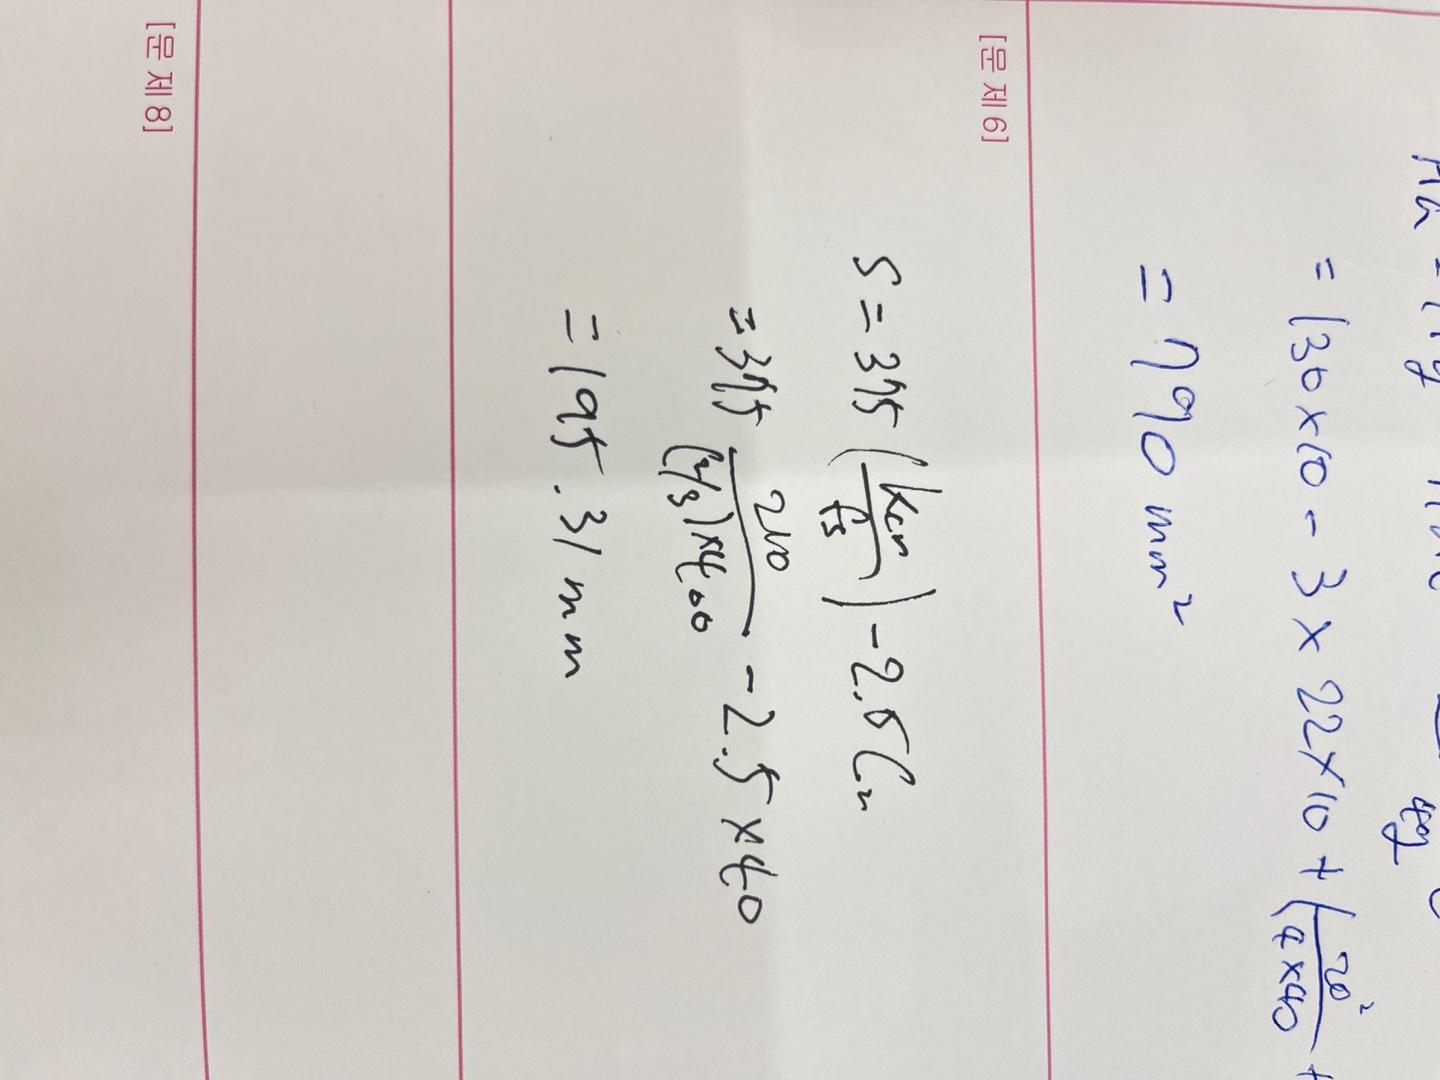 = 130×10 - 3 × 22×10 + (20²/4×40
= 790 mm²
[문 제 6]
S = 375 (kcr/fs) - 2.5Cc
= 375 210/(2/3)×400 - 2.5×40
= 195.31 mm
[문 제 8]